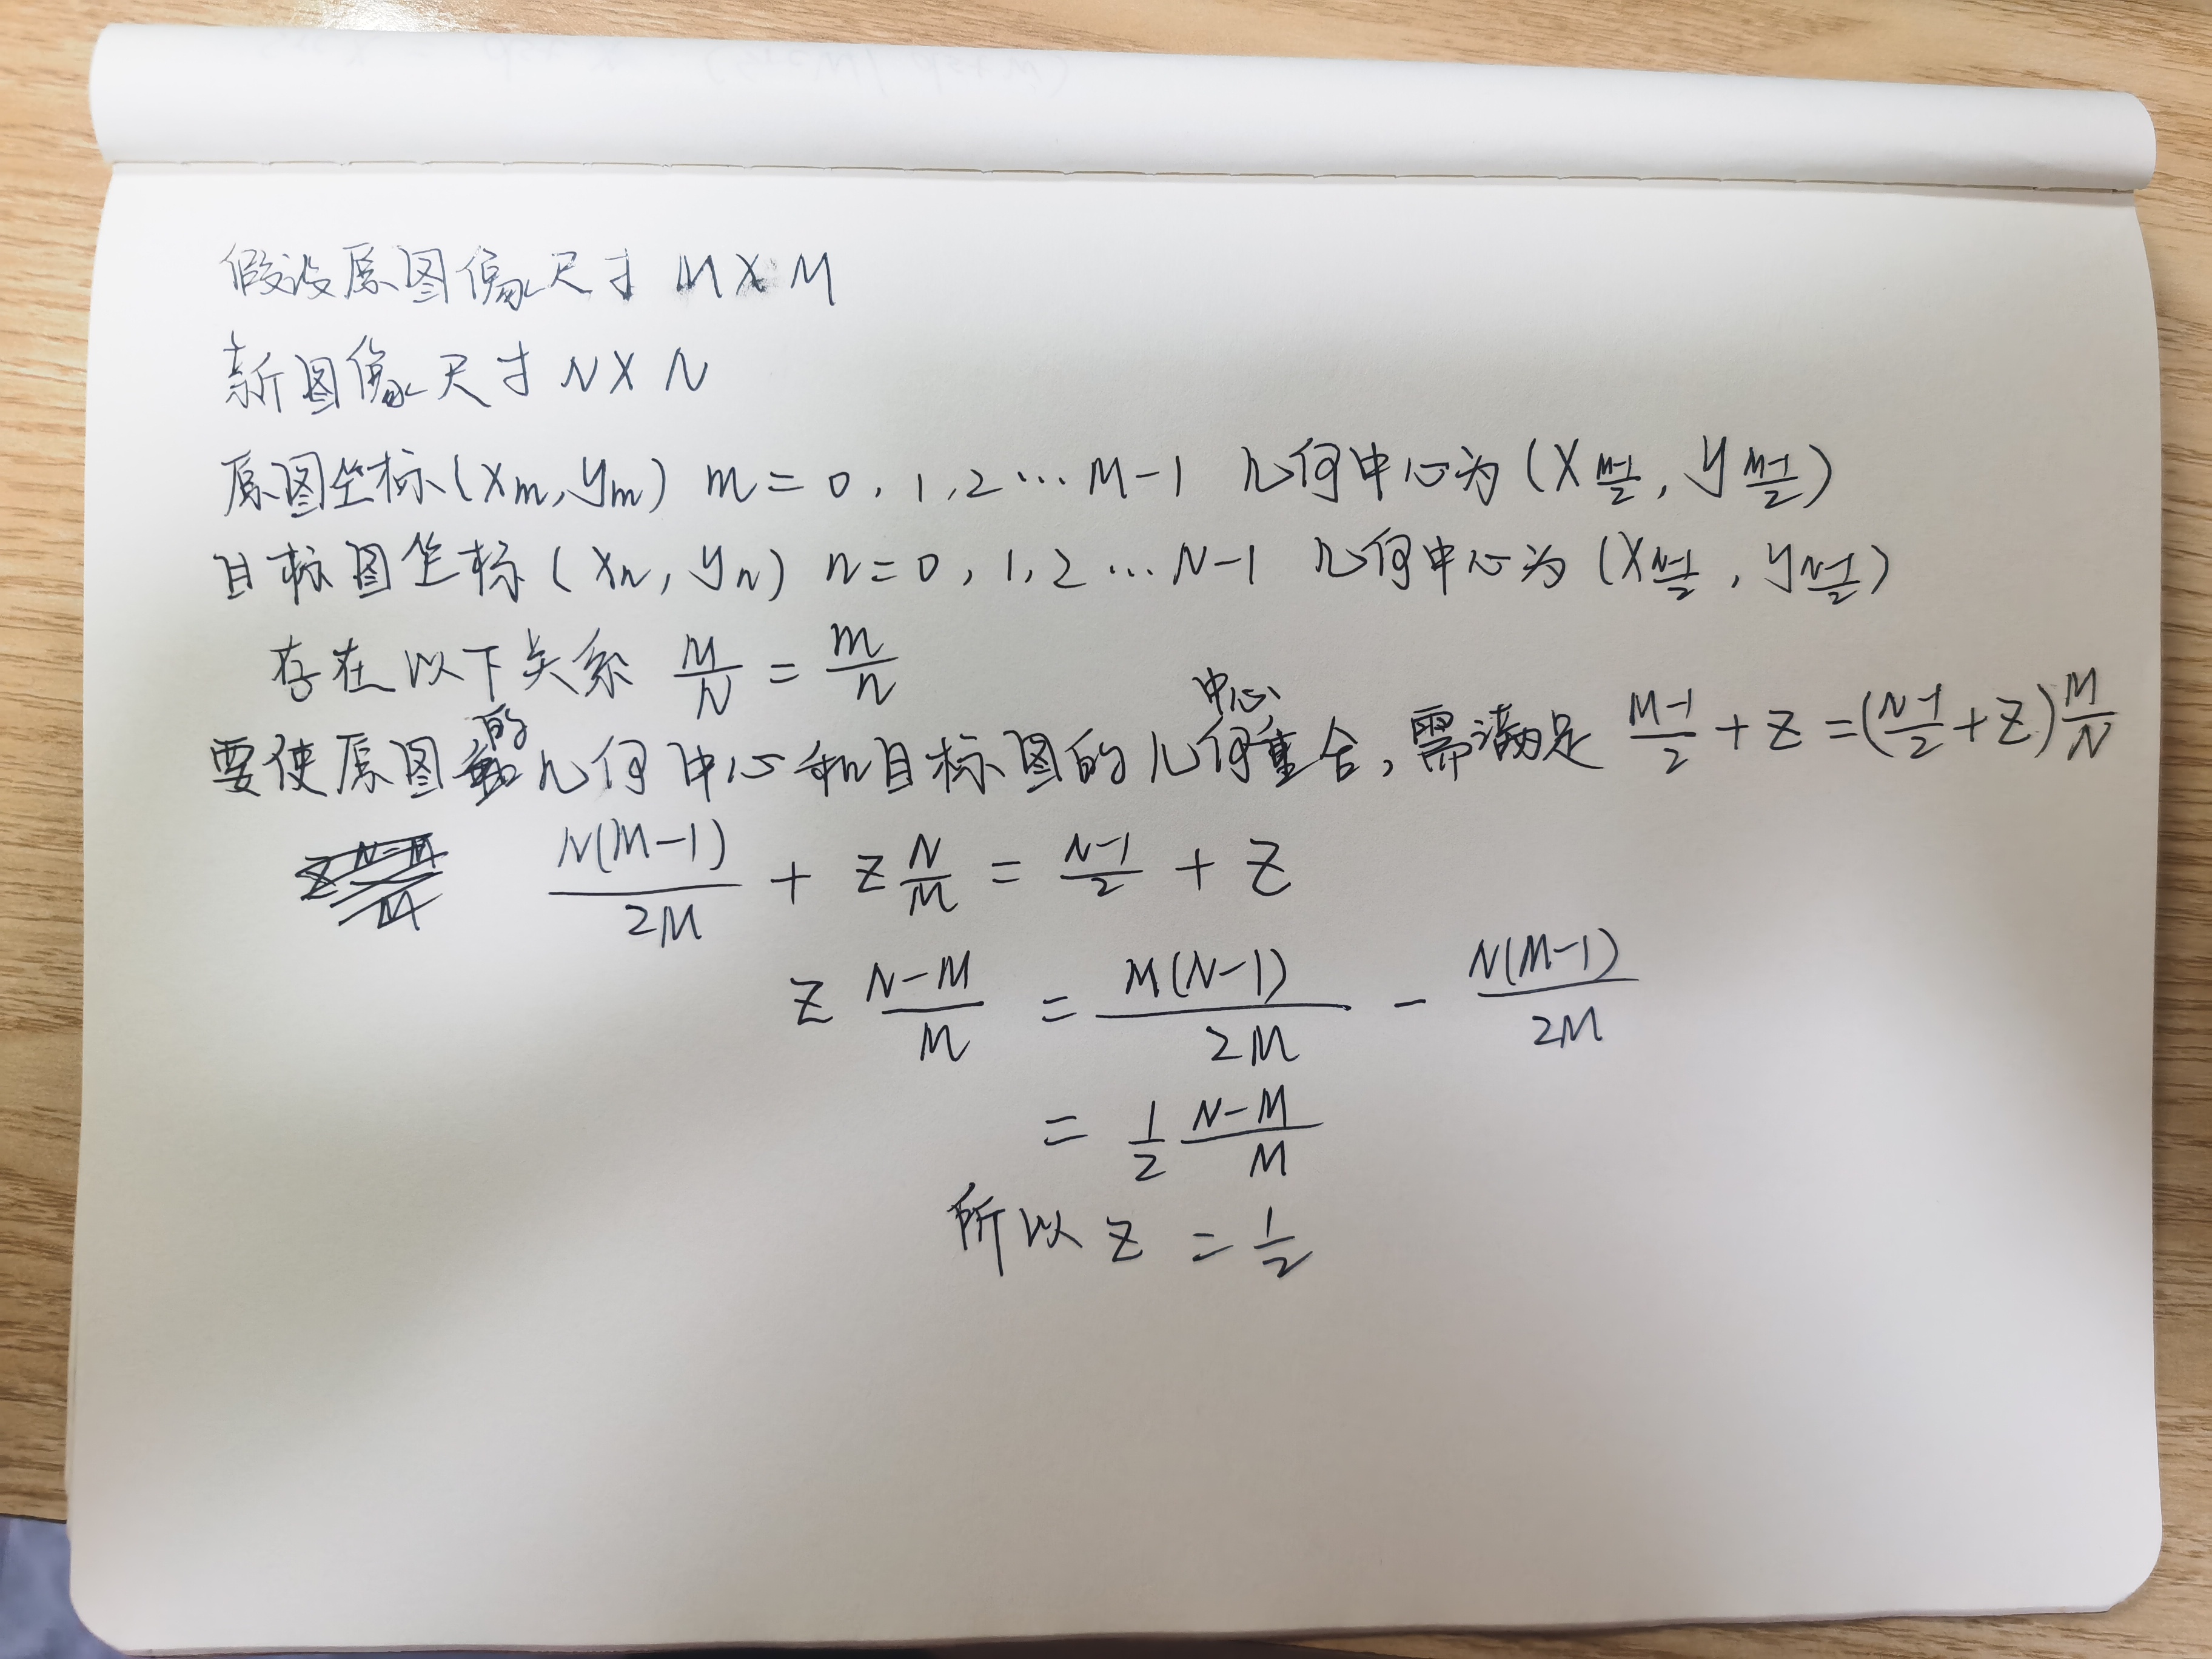 假设原图像尺寸 M X M
新图像尺寸 N X N
原图坐标(Xm,ym) m = 0,1,2…M-1 几何中心为 (X (M-1)/2, y (M-1)/2)
目标图坐标(Xn,yn) n=0,1,2…N-1 几何中心为 (X (N-1)/2, y (N-1)/2)
存在以下关系 M/N = m/n
要使原图的几何中心和目标图的几何中心重合,需满足 (M-1)/2 + Z = ((N-1)/2 + Z) M/N
N(M-1)/2M + Z N/M = (N-1)/2 + Z
Z (N-M)/M = M(N-1)/2M - N(M-1)/2M
= 1/2 (N-M)/M
所以 Z = 1/2